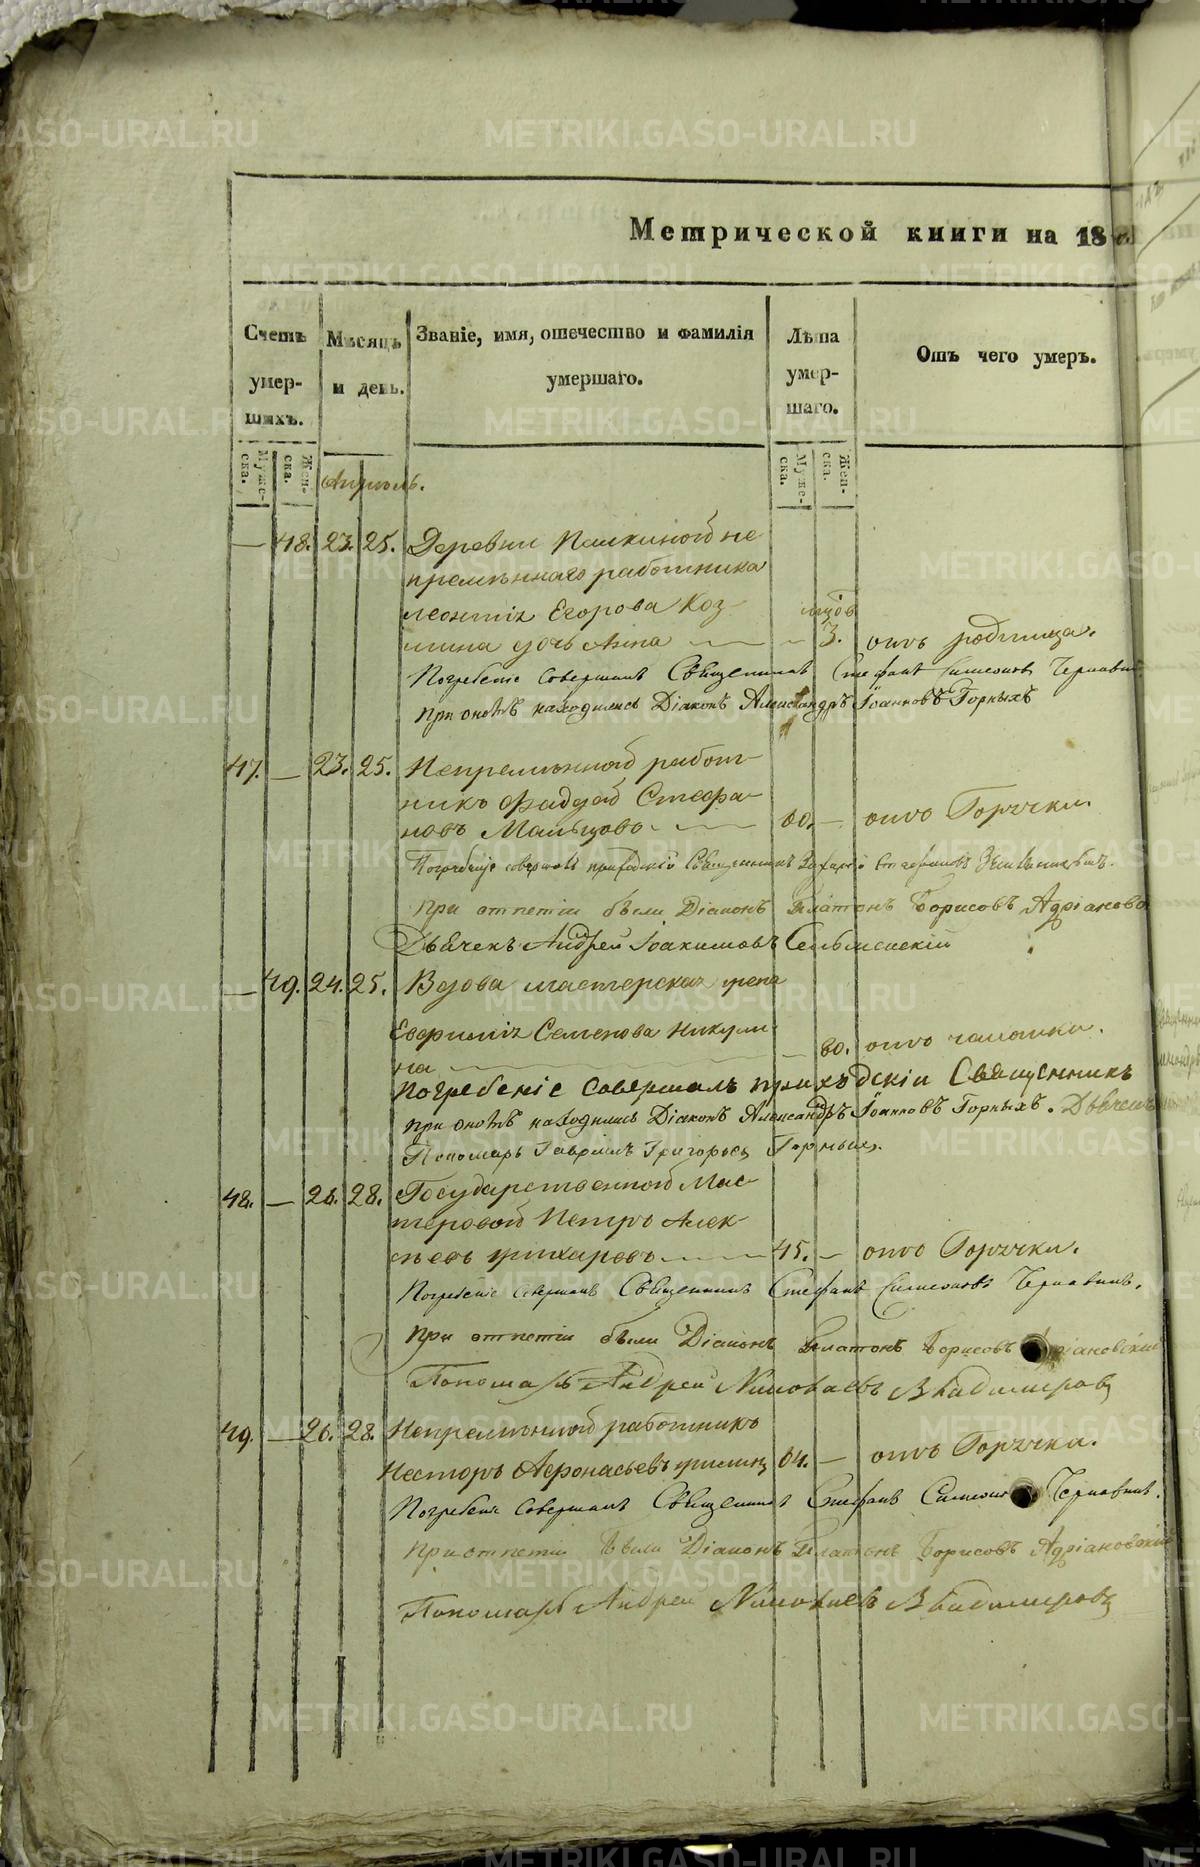 Метрической книги на 18
Счетъ умер- шихъ.
Муже- ска.
Жен- ска.
Месяцъ и день.
Званіе, имя, отечество и фамилія
умершаго.
Лѣта умер- шаго.
Муже- ска.
Жен- ска.
Отъ чего умеръ.
Апрель.
— 48. 23. 25. Деревни Пашкиной не
премѣннаго работника
Леонтія Егорова Коз-
мина дочь Анна — 3. отъ родимца.
Погребеніе совершалъ Священникъ Стефанъ Симеоновъ Чернавинъ
При ономъ находились Діаконъ Александръ Іоанновъ Горныхъ
47. — 23. 25. Непремѣнной работ-
никъ Фадей Стефа-
новъ Мальцовъ — 60. — отъ Горячки.
Погребеніе совершалъ приходскій Священникъ Захарій
При отпетіи были Діаконъ Платонъ Борисовъ Адріановъ
Дьячекъ Андрей Іоакимовъ
— 49. 24. 25. Вдова мастерская жена
Евфимія Семенова Никули-
на — 80. отъ чахотки.
Погребеніе совершалъ приходскій Священникъ
при ономъ находились Діаконъ Александръ Іоанновъ Горныхъ. Дьячекъ
Пономарь Гавріилъ Григорьев Горныхъ.
48. — 26. 28. Государственной Мас-
теровой Петръ Алек-
сѣевъ — 45. — отъ Горячки.
Погребеніе совершалъ Священникъ Стефанъ Симеоновъ Чернавинъ.
При отпетіи были Діаконъ Платонъ Борисовъ
Пономарь Андрей Николаевъ Владимировъ
49. — 26. 28. Непремѣнной работникъ
Несторъ Афонасьевъ 64. — отъ Горячки.
Погребеніе совершалъ Священникъ Стефанъ Чернавинъ.
При отпетіи были Діаконъ Платонъ Борисовъ Адріановскій
Пономарь Андрей Николаевъ Владимировъ
METRIKI.GASO-URAL.RU